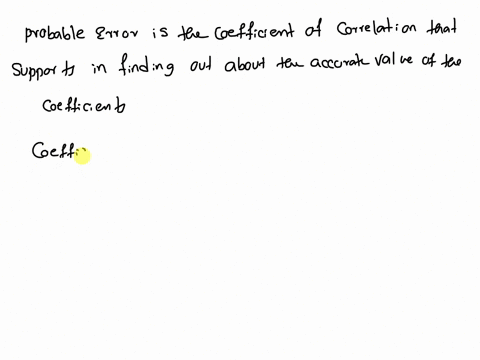 Probable Error is the Coefficient of Correlation that
Supports in finding out about the accurate value of the
Coefficients
Coeffi